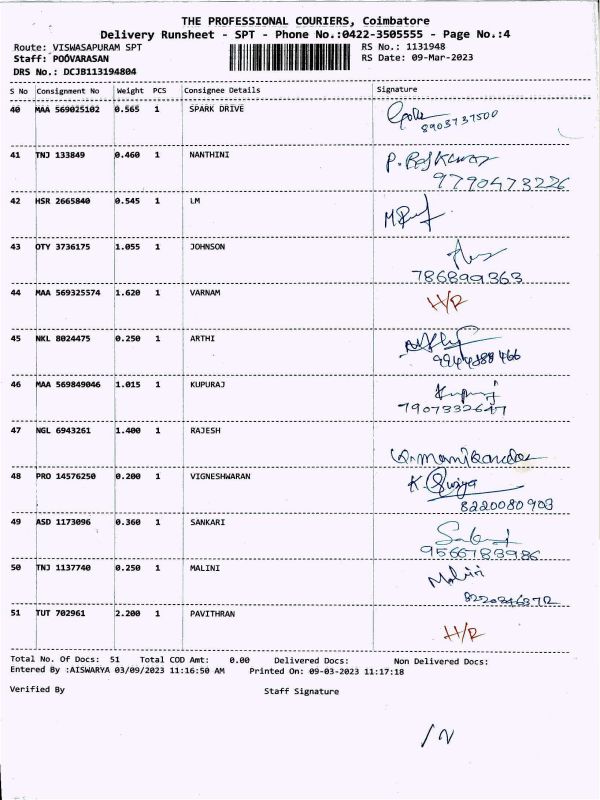 THE PROFESSIONAL COURIERS, Coimbatore
Delivery Runsheet - SPT - Phone No.:0422-3505555 - Page No.:4
Route: VISWASAPURAM SPT RS No.: 1131948
Staff: POOVARASAN RS Date: 09-Mar-2023
DRS No.: DCJB113194804
S No Consignment No Weight PCS Consignee Details Signature
40 MAA 569025102 0.565 1 SPARK DRIVE
8903737500
41 TNJ 133849 0.460 1 NANTHINI P. Rajkumar
9790473226
42 HSR 2665840 0.545 1 LM
43 OTY 3736175 1.055 1 JOHNSON
786899363
44 MAA 569325574 1.620 1 VARNAM H/R
45 NKL 8024475 0.250 1 ARTHI
46 MAA 569849046 1.015 1 KUPURAJ Kupuraj
7907332647
47 NGL 6943261 1.400 1 RAJESH
48 PRO 14576250 0.200 1 VIGNESHWARAN
8220080903
49 ASD 1173096 0.360 1 SANKARI
9566783986
50 TNJ 1137740 0.250 1 MALINI Malini
51 TUT 702961 2.200 1 PAVITHRAN H/R
Total No. Of Docs: 51 Total COD Amt: 0.00 Delivered Docs: Non Delivered Docs:
Entered By :AISWARYA 03/09/2023 11:16:50 AM Printed On: 09-03-2023 11:17:18
Verified By Staff Signature